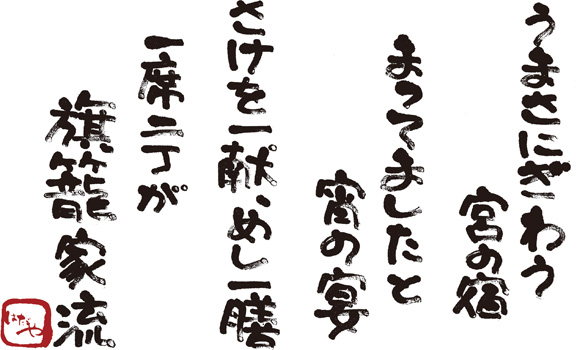 うまさにざわう
宮の宿
まってましたと
宵の宴
さけを一献、めし一膳
一席二丁が
旗籠家流
はたごや